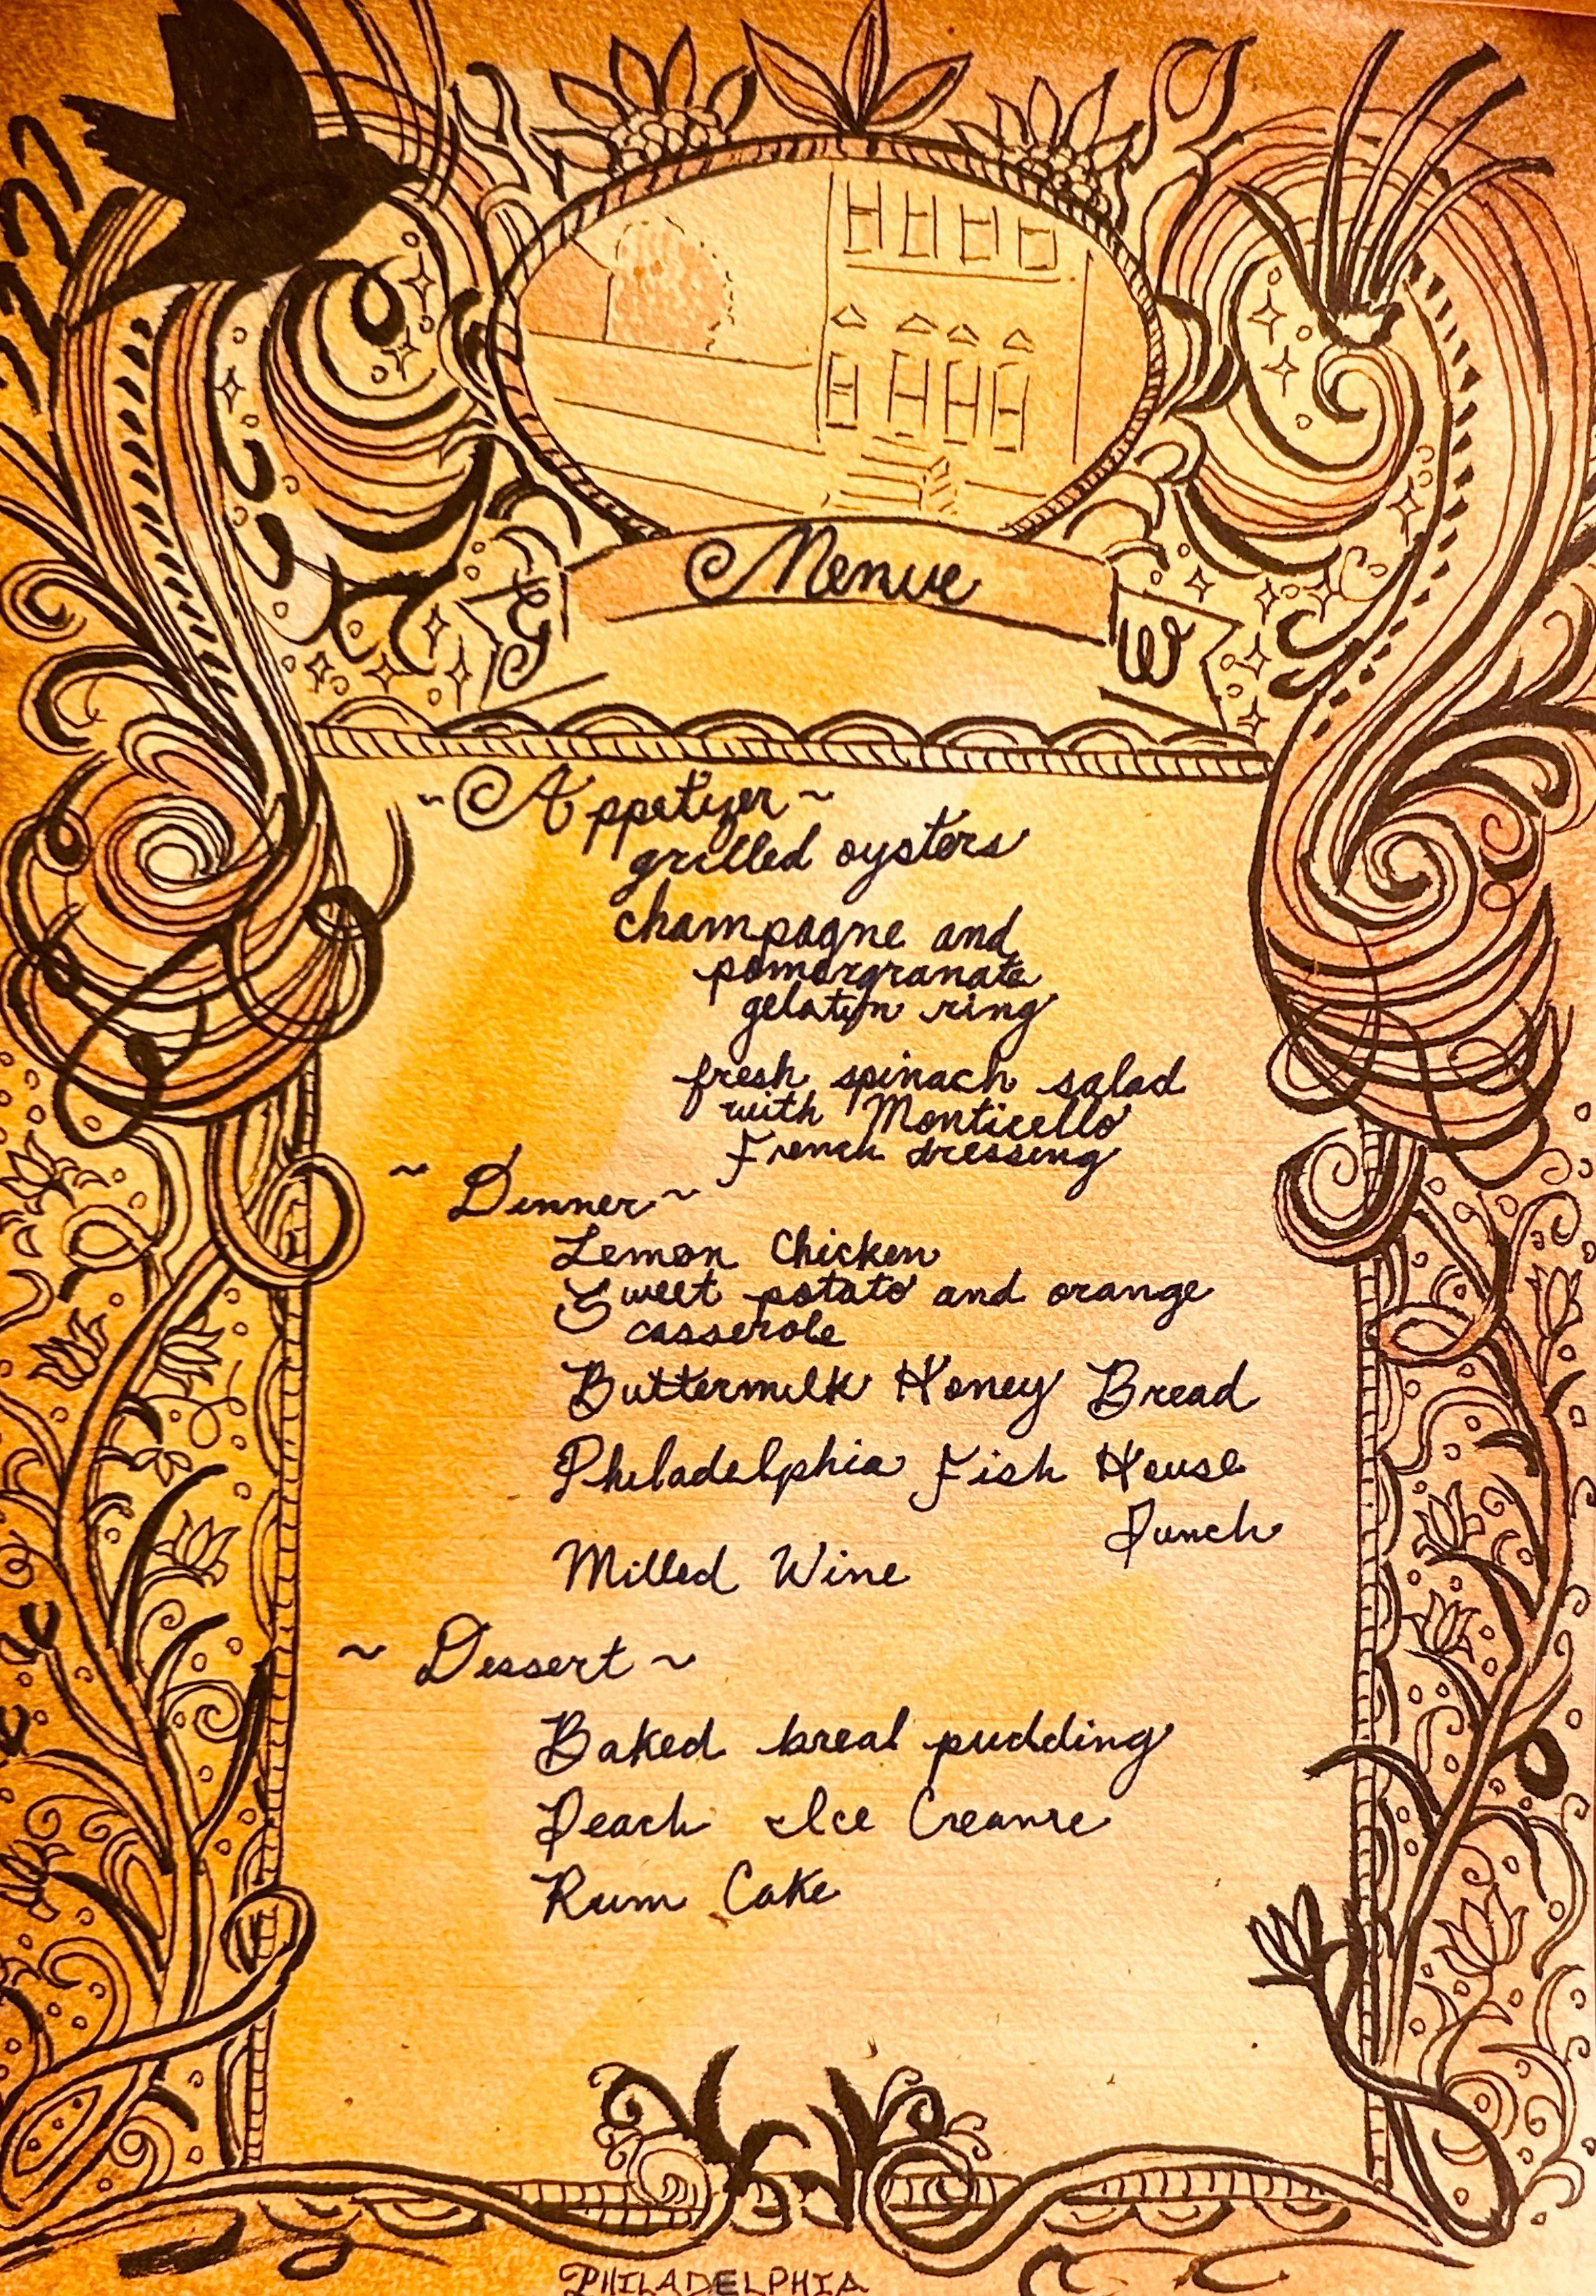 Menue
G W
~ Appetizer ~
grilled oysters
champagne and
pomergranate
gelatin ring
fresh spinach salad
with Monticello
French dressing
~ Dinner ~
Lemon Chicken
Sweet potato and orange
casserole
Buttermilk Honey Bread
Philadelphia Fish House
Punch
Milled Wine
~ Dessert ~
Baked breal pudding
Peach Ice Creame
Rum Cake
PHILADELPHIA